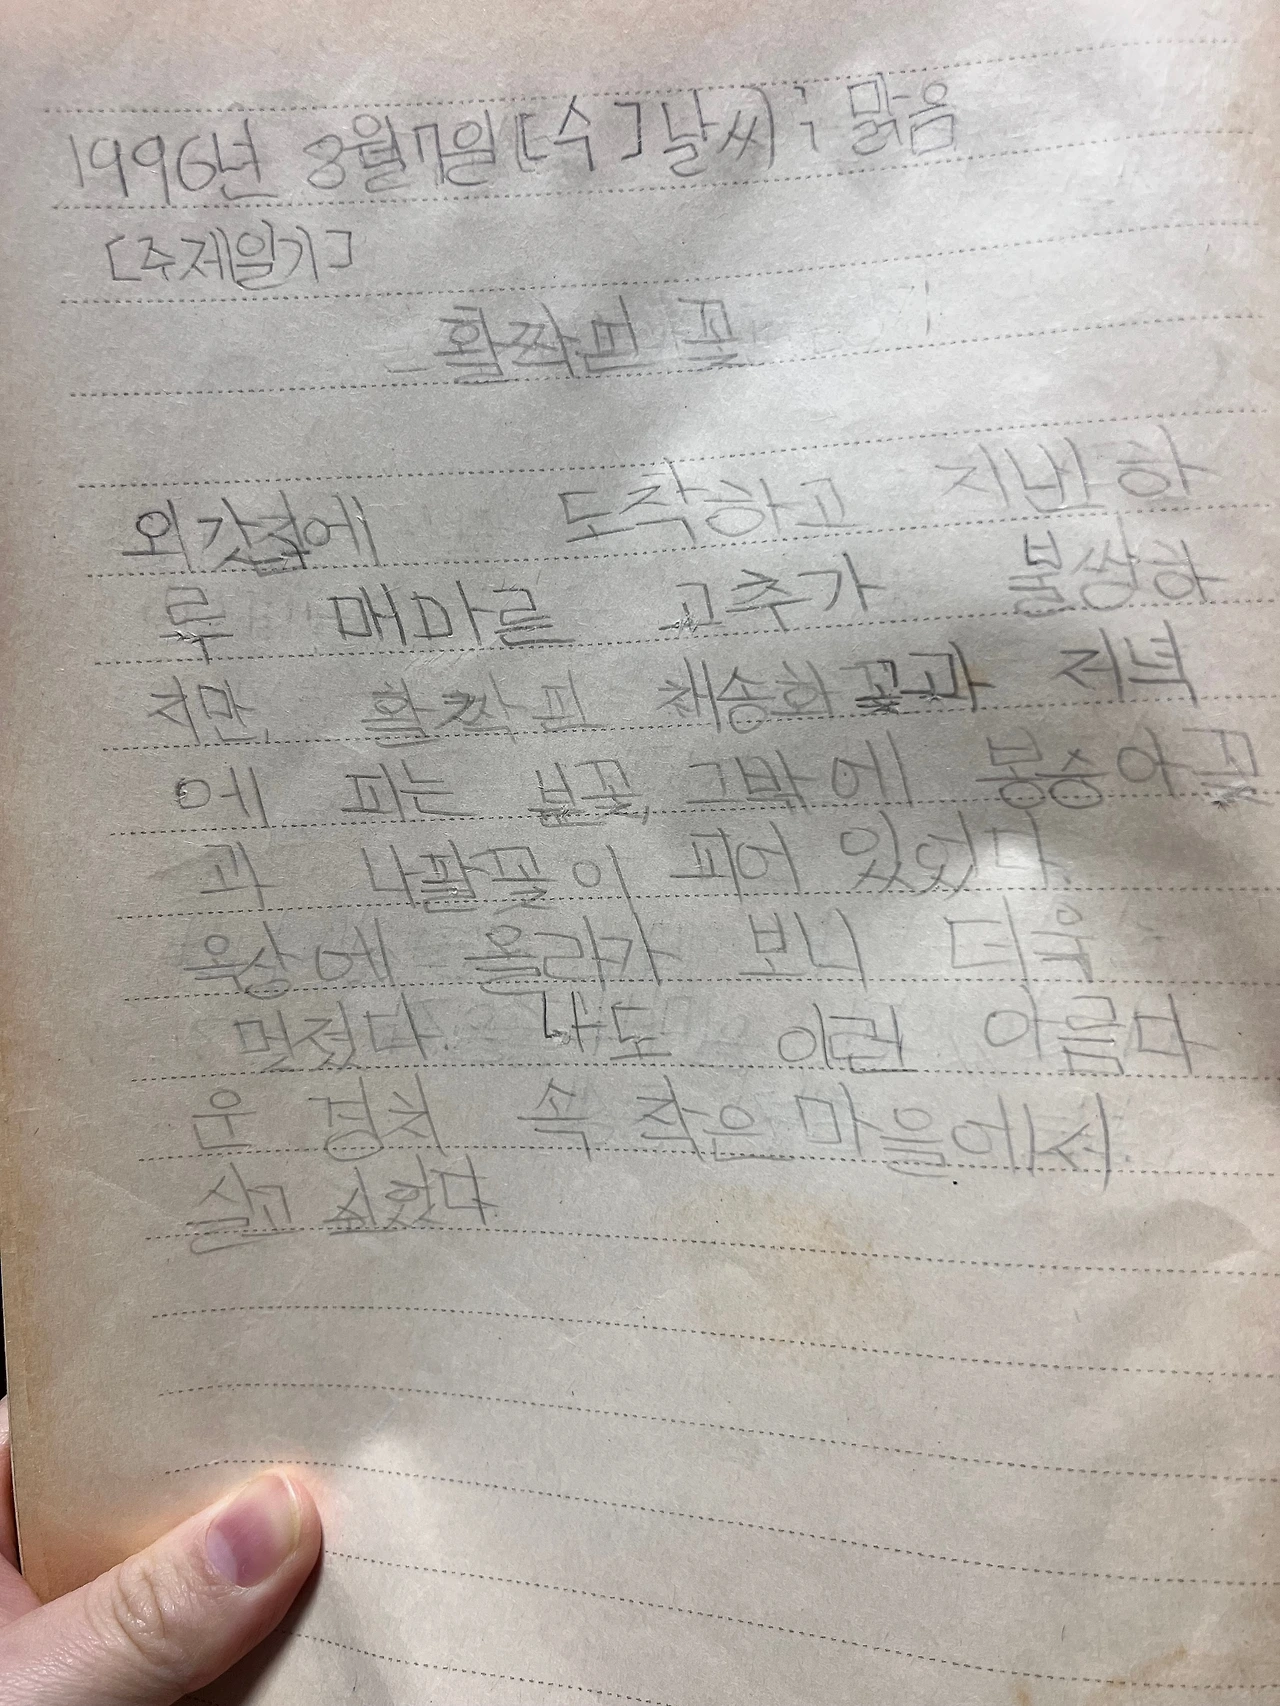 1996년 8월 7일 [수] 날씨 ; 맑음
[주제일기]
활짝핀 꽃
외갓집에 도착하고 지반 하
루 매마른 고추가 불쌍하
지만, 활짝 핀 채송화꽃과 저녁
에 피는 분꽃, 그밖에 봉숭아꽃
과 나팔꽃이 피어 있었다.
옥상에 올라가 보니 더욱
멋졌다. 나도 이런 아름다
운 경치 속 작은 마을에서
살고 싶었다.